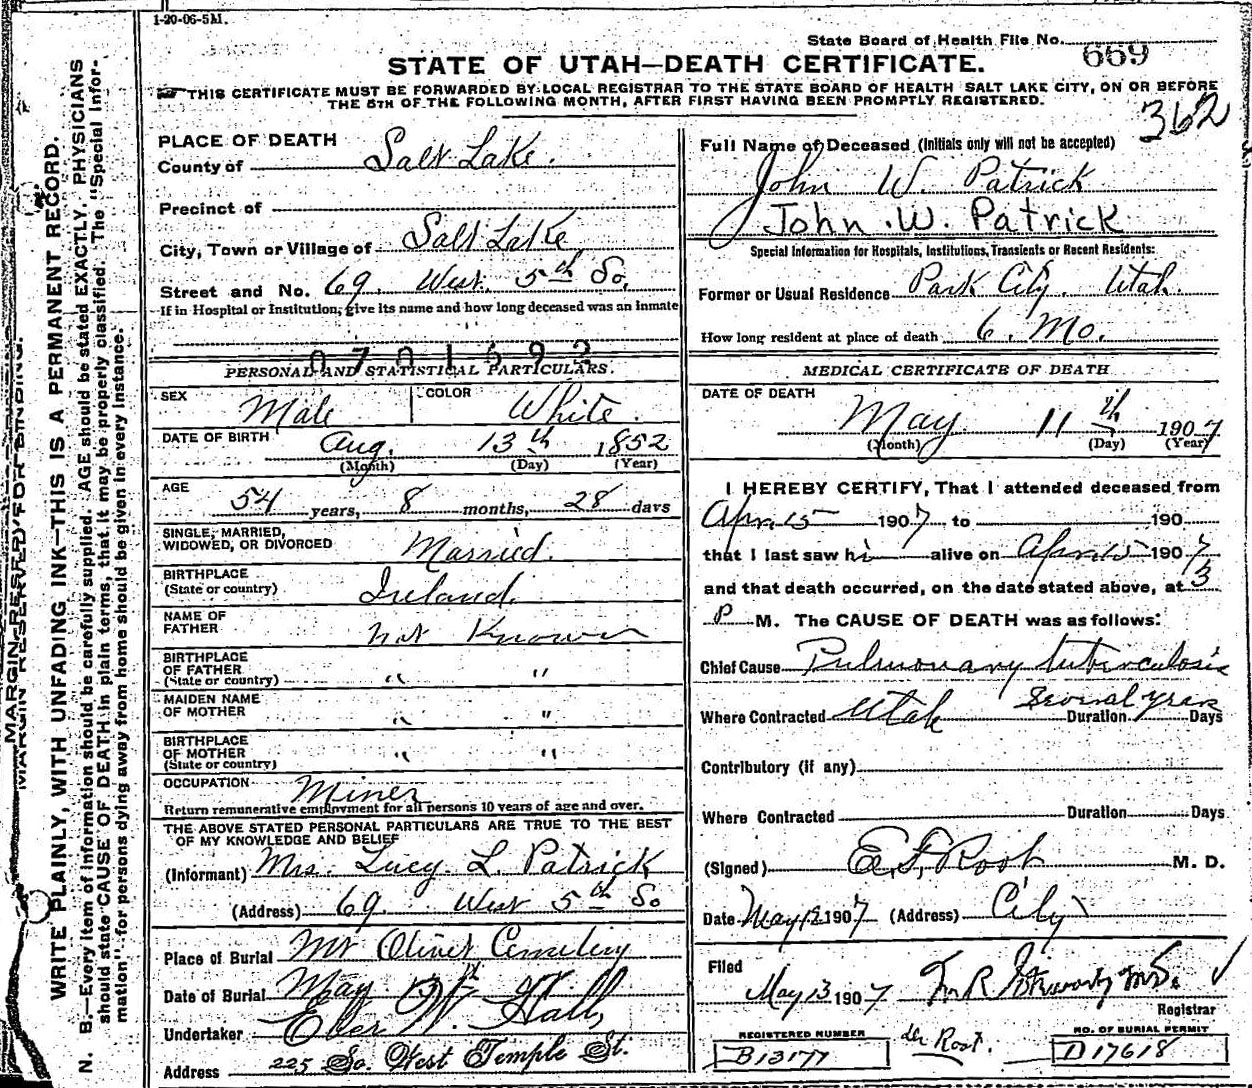 1-20-06-5M.
State Board of Health File No. 669
STATE OF UTAH—DEATH CERTIFICATE.
THIS CERTIFICATE MUST BE FORWARDED BY LOCAL REGISTRAR TO THE STATE BOARD OF HEALTH SALT LAKE CITY, ON OR BEFORE
THE 5TH OF THE FOLLOWING MONTH, AFTER FIRST HAVING BEEN PROMPTLY REGISTERED.
362
MARGIN RESERVED FOR BINDING.
WRITE PLAINLY, WITH UNFADING INK—THIS IS A PERMANENT RECORD.
N. B.—Every item of information should be carefully supplied. AGE should be stated EXACTLY. PHYSICIANS
should state CAUSE OF DEATH in plain terms, that it may be properly classified. The "Special Infor-
mation" for persons dying away from home should be given in every instance.
PLACE OF DEATH
County of Salt Lake.
Precinct of
City, Town or Village of Salt Lake
Street and No. 69. West. 5th So.
If in Hospital or Institution, give its name and how long deceased was an inmate
0701592
PERSONAL AND STATISTICAL PARTICULARS.
SEX Male COLOR White.
DATE OF BIRTH Aug. 13th 1852
(Month) (Day) (Year)
AGE 54 years, 8 months, 28 days
SINGLE, MARRIED,
WIDOWED, OR DIVORCED Married.
BIRTHPLACE
(State or country) Ireland.
NAME OF
FATHER not Known
BIRTHPLACE
OF FATHER
(State or country) " "
MAIDEN NAME
OF MOTHER " "
BIRTHPLACE
OF MOTHER
(State or country) " "
OCCUPATION Miner
Return remunerative employment for all persons 10 years of age and over.
THE ABOVE STATED PERSONAL PARTICULARS ARE TRUE TO THE BEST
OF MY KNOWLEDGE AND BELIEF
(Informant) Mrs. Lucy. L. Patrick
(Address) 69. West 5th So
Place of Burial Mt Olivet Cemetery
Date of Burial May
Undertaker Eber W. Hall
Address 225 So. West Temple St.
Full Name of Deceased (Initials only will not be accepted)
John W. Patrick
John. W. Patrick
Special Information for Hospitals, Institutions, Transients or Recent Residents:
Former or Usual Residence Park City. Utah.
How long resident at place of death 6. Mo.
MEDICAL CERTIFICATE OF DEATH
DATE OF DEATH
May 11th 1907
(Month) (Day) (Year)
I HEREBY CERTIFY, That I attended deceased from
Apr. 15 1907 to 190
that I last saw hi alive on Apr. 15 1907
and that death occurred, on the date stated above, at 3
P M. The CAUSE OF DEATH was as follows:
Chief Cause Pulmonary tuberculosis
Where Contracted Utah Duration Several years Days
Contributory (if any)
Where Contracted Duration Days
(Signed) E. F. Root M. D.
Date May 12 1907 (Address) City
Filed
May 13 1907
Registrar
REGISTERED NUMBER
B13177
dr Root.
NO. OF BURIAL PERMIT
D17618